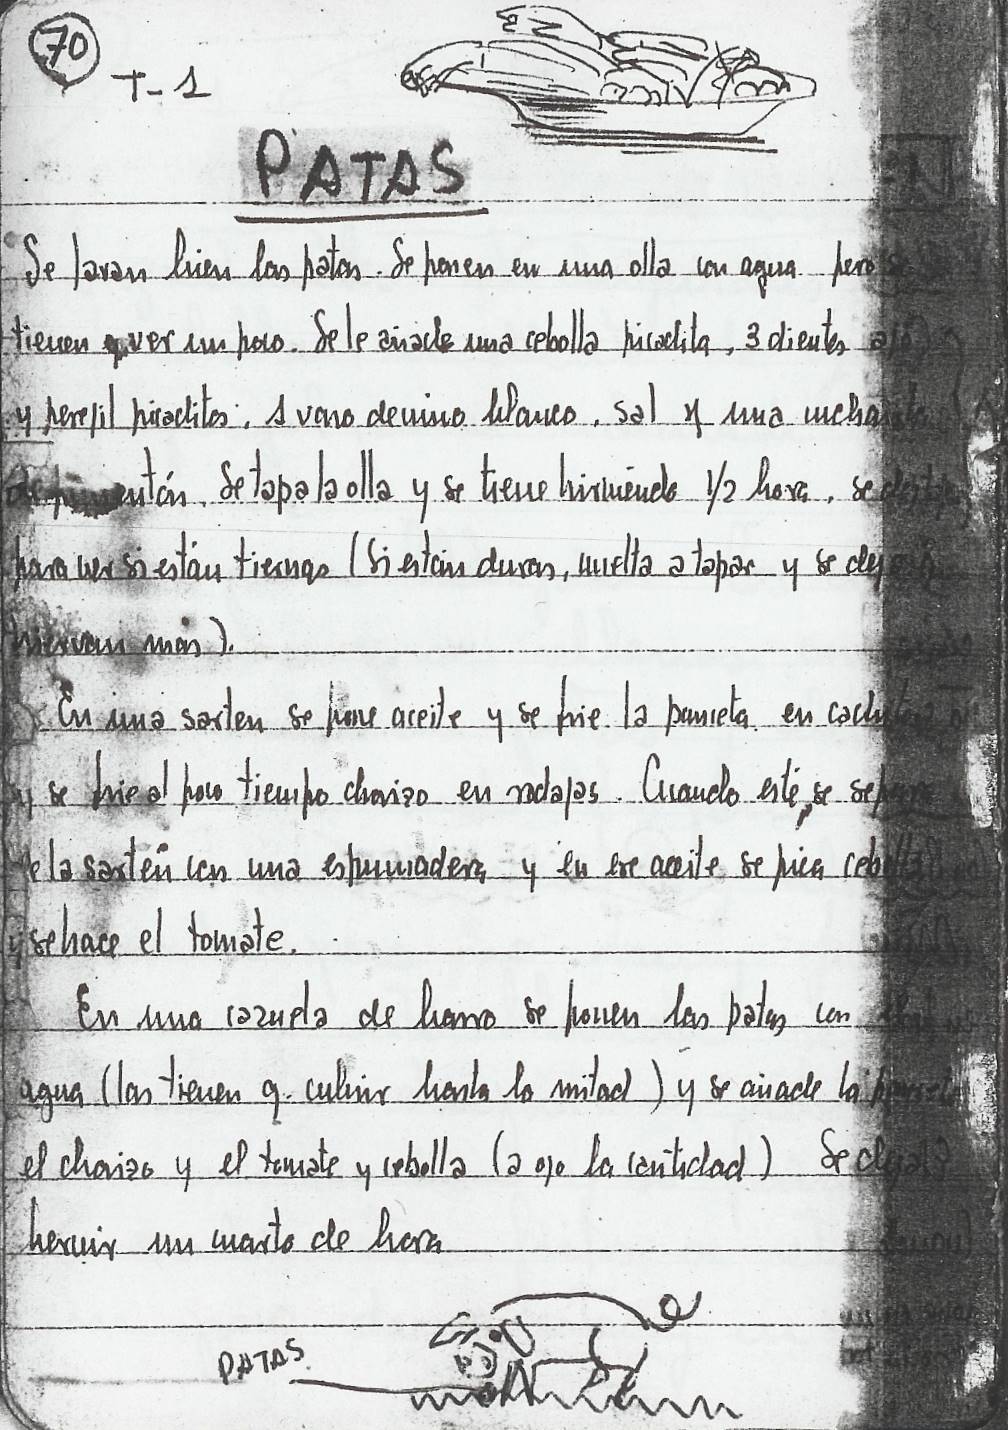 70
T-1
PATAS
Se lavan bien las patas. Se ponen en una olla con agua pero se
tienen q. ver un poco. Se le añade una cebolla picadita, 3 dientes ajo
y perejil picaditos, 1 vaso de vino blanco, sal y una cucharada
de pimentón. Se tapa la olla y se tiene hirviendo 1/2 hora, se destapa
para ver si están tiernas (Si están duras, vuelta a tapar y se deja q.
hiervan más).
En una sarten se pone aceite y se frie la panceta en cachitos
y se frie al poco tiempo chorizo en rodajas. Cuando esté, se separa
de la sartén con una espumadera y en ese aceite se pica cebolla
y se hace el tomate.
En una cazuela de barro se ponen las patas con
agua (las tienen q. cubrir hasta la mitad) y se añade la panceta
el chorizo y el tomate y cebolla (a ojo la cantidad) Se deja
hervir un cuarto de hora
PATAS